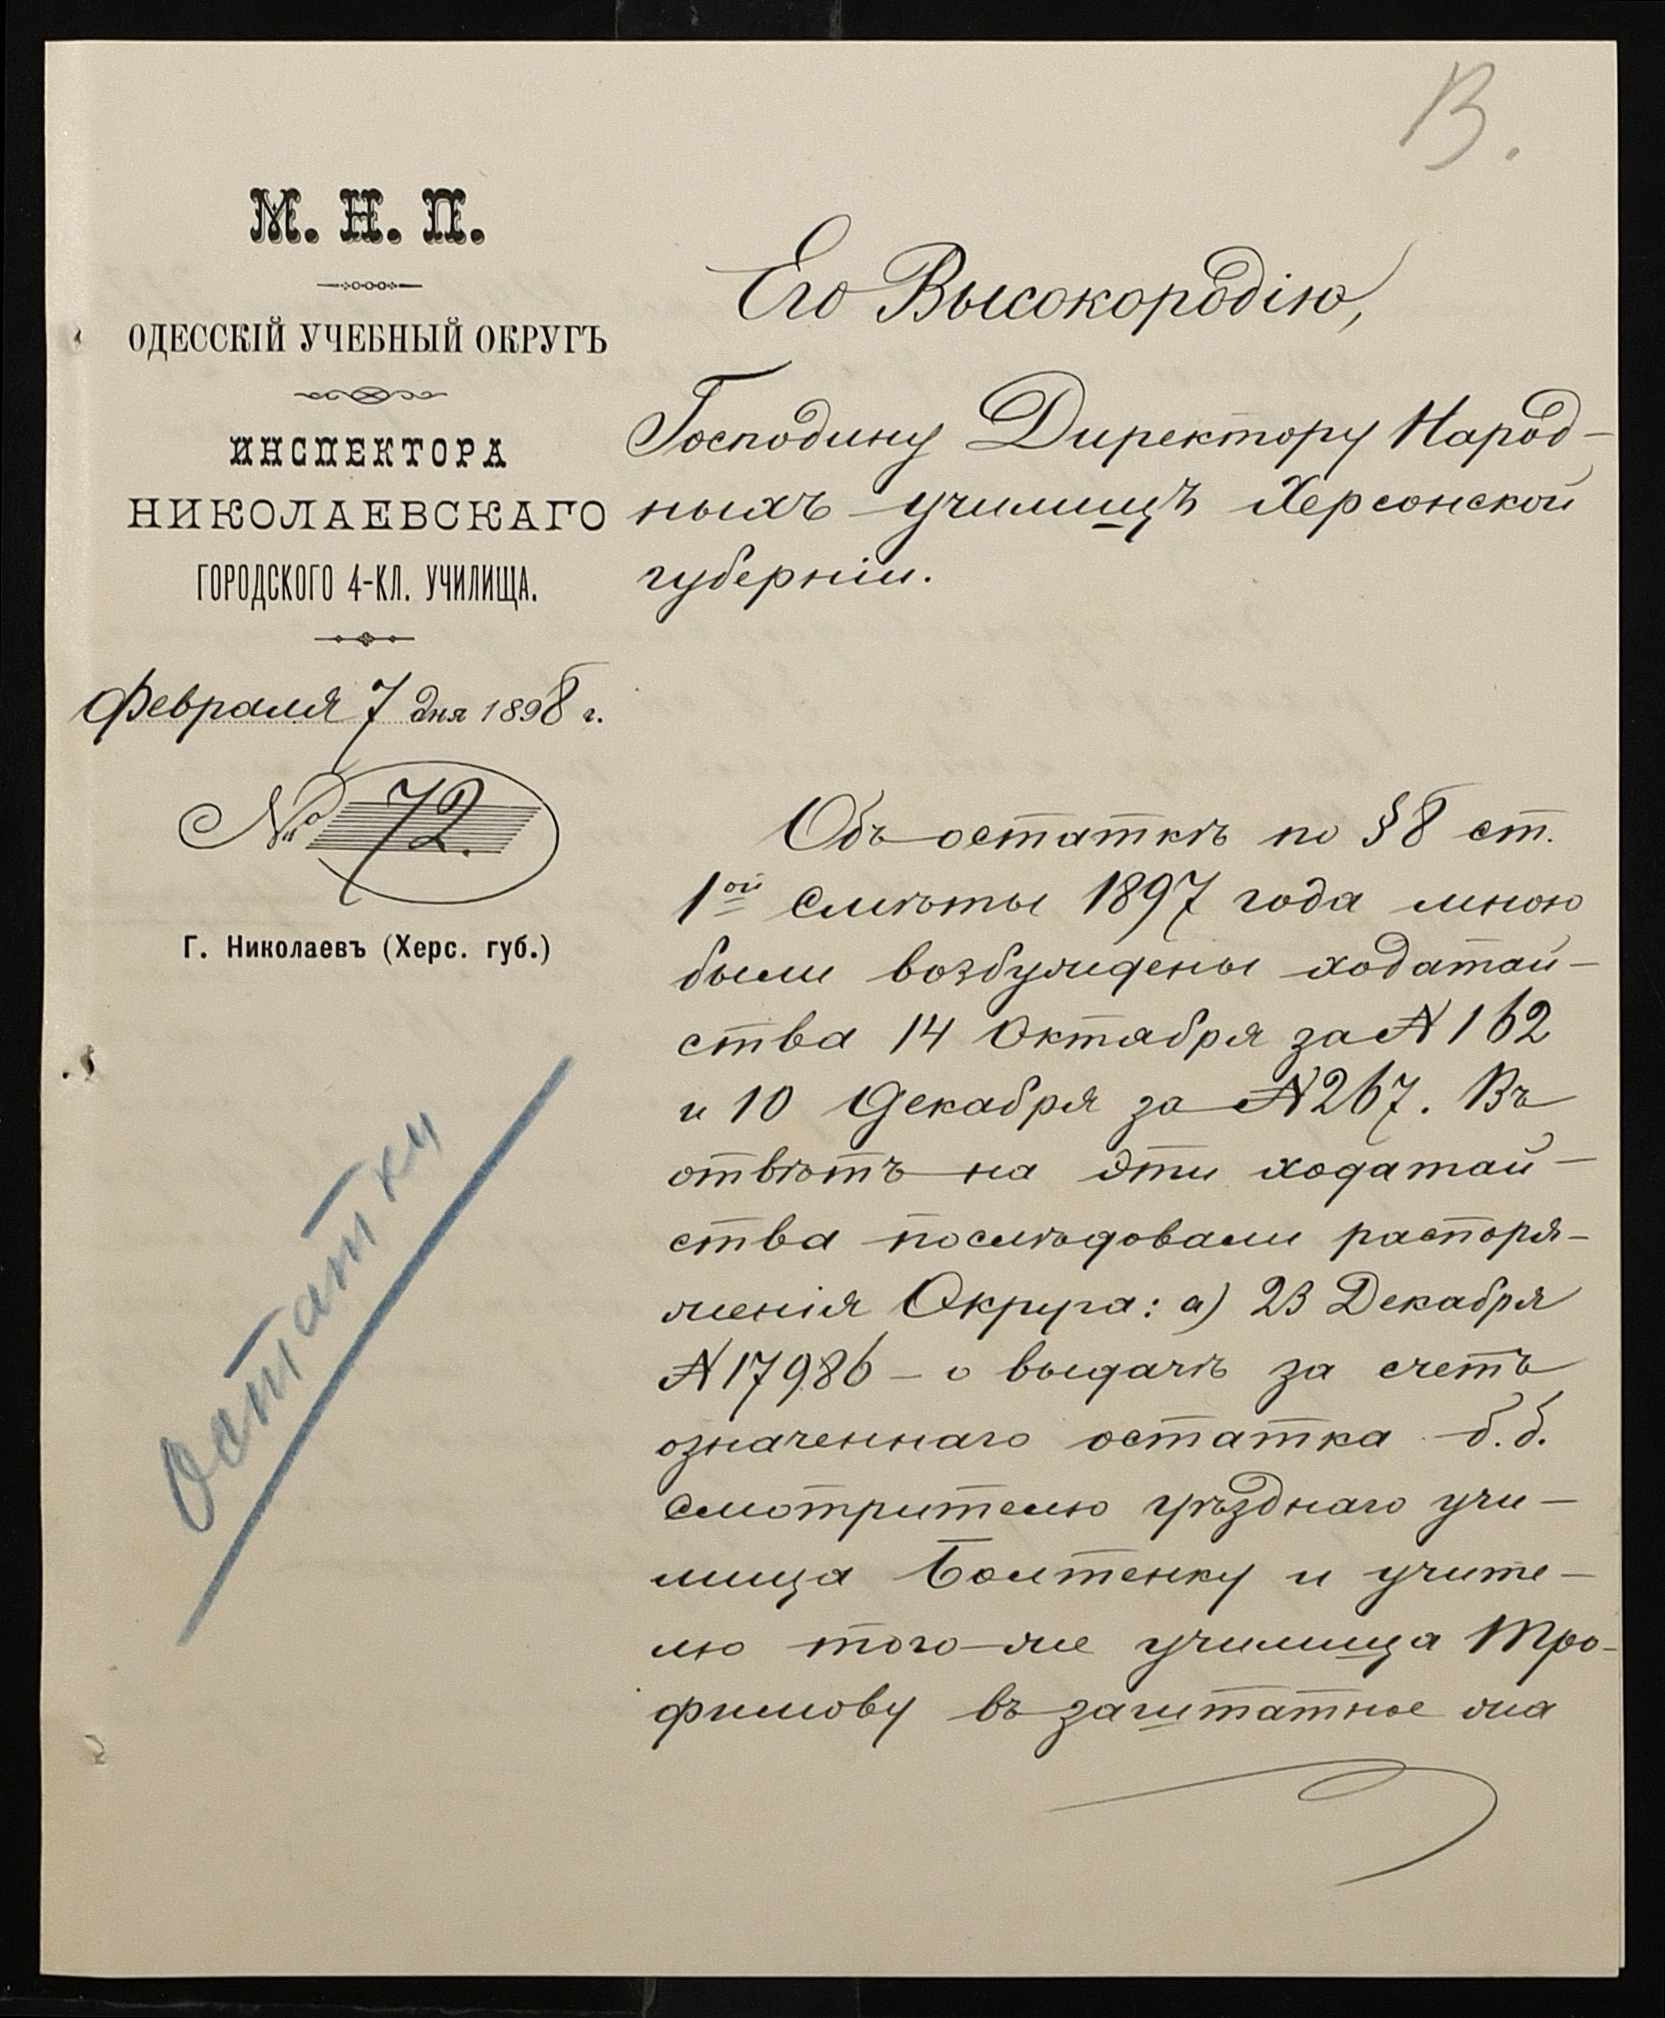 В.
М. Н. П.
ОДЕССКІЙ УЧЕБНЫЙ ОКРУГЪ
ИНСПЕКТОРА
НИКОЛАЕВСКАГО
ГОРОДСКОГО 4-КЛ. УЧИЛИЩА.
Февраля 7 дня 1898 г.
№ 72.
Г. Николаевъ (Херс. губ.)
остатки
Его Высокородію,
Господину Директору Народ-
ныхъ училищъ Херсонской
губерніи.
Объ остаткѣ по § 8 ст.
1ой смѣты 1897 года мною
были возбуждены ходатай-
ства 14 Октября за № 162
и 10 Декабря за № 267. Въ
отвѣтъ на эти ходатай-
ства послѣдовали распоря-
женія Округа: а) 23 Декабря
№ 17986 – о выдачѣ за счетъ
означеннаго остатка б. б.
смотрителю уѣзднаго учи-
лища Болтенку и учите-
лю того-же училища Тро-
фимову въ заштатное жа